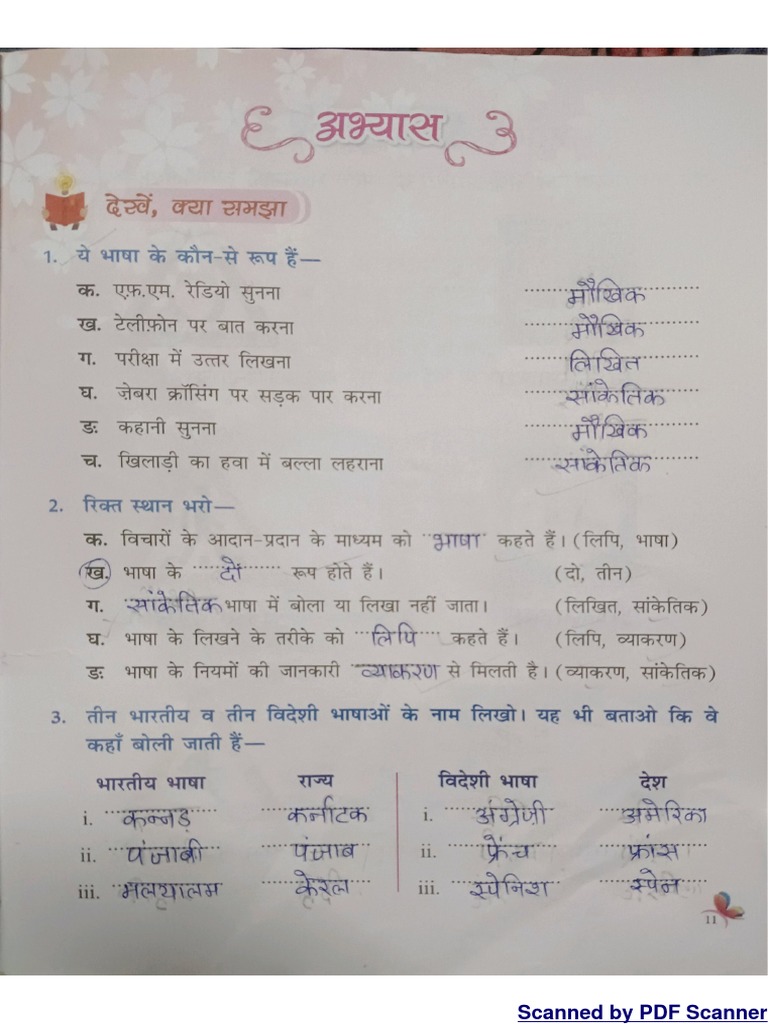 अभ्यास
देखें, क्या समझा
1. ये भाषा के कौन-से रूप हैं—
क. एफ़.एम. रेडियो सुनना मौखिक
ख. टेलीफ़ोन पर बात करना मौखिक
ग. परीक्षा में उत्तर लिखना लिखित
घ. ज़ेबरा क्रॉसिंग पर सड़क पार करना सांकेतिक
ङ. कहानी सुनना मौखिक
च. खिलाड़ी का हवा में बल्ला लहराना सांकेतिक
2. रिक्त स्थान भरो—
क. विचारों के आदान-प्रदान के माध्यम को भाषा कहते हैं। (लिपि, भाषा)
ख. भाषा के दो रूप होते हैं। (दो, तीन)
ग. सांकेतिक भाषा में बोला या लिखा नहीं जाता। (लिखित, सांकेतिक)
घ. भाषा के लिखने के तरीके को लिपि कहते हैं। (लिपि, व्याकरण)
ङ. भाषा के नियमों की जानकारी व्याकरण से मिलती है। (व्याकरण, सांकेतिक)
3. तीन भारतीय व तीन विदेशी भाषाओं के नाम लिखो। यह भी बताओ कि वे
कहाँ बोली जाती हैं—
भारतीय भाषा राज्य विदेशी भाषा देश
i. कन्नड़ कर्नाटक i. अंग्रेज़ी अमेरिका
ii. पंजाबी पंजाब ii. फ्रेंच फ्रांस
iii. मलयालम केरल iii. स्पेनिश स्पेन
11
Scanned by PDF Scanner